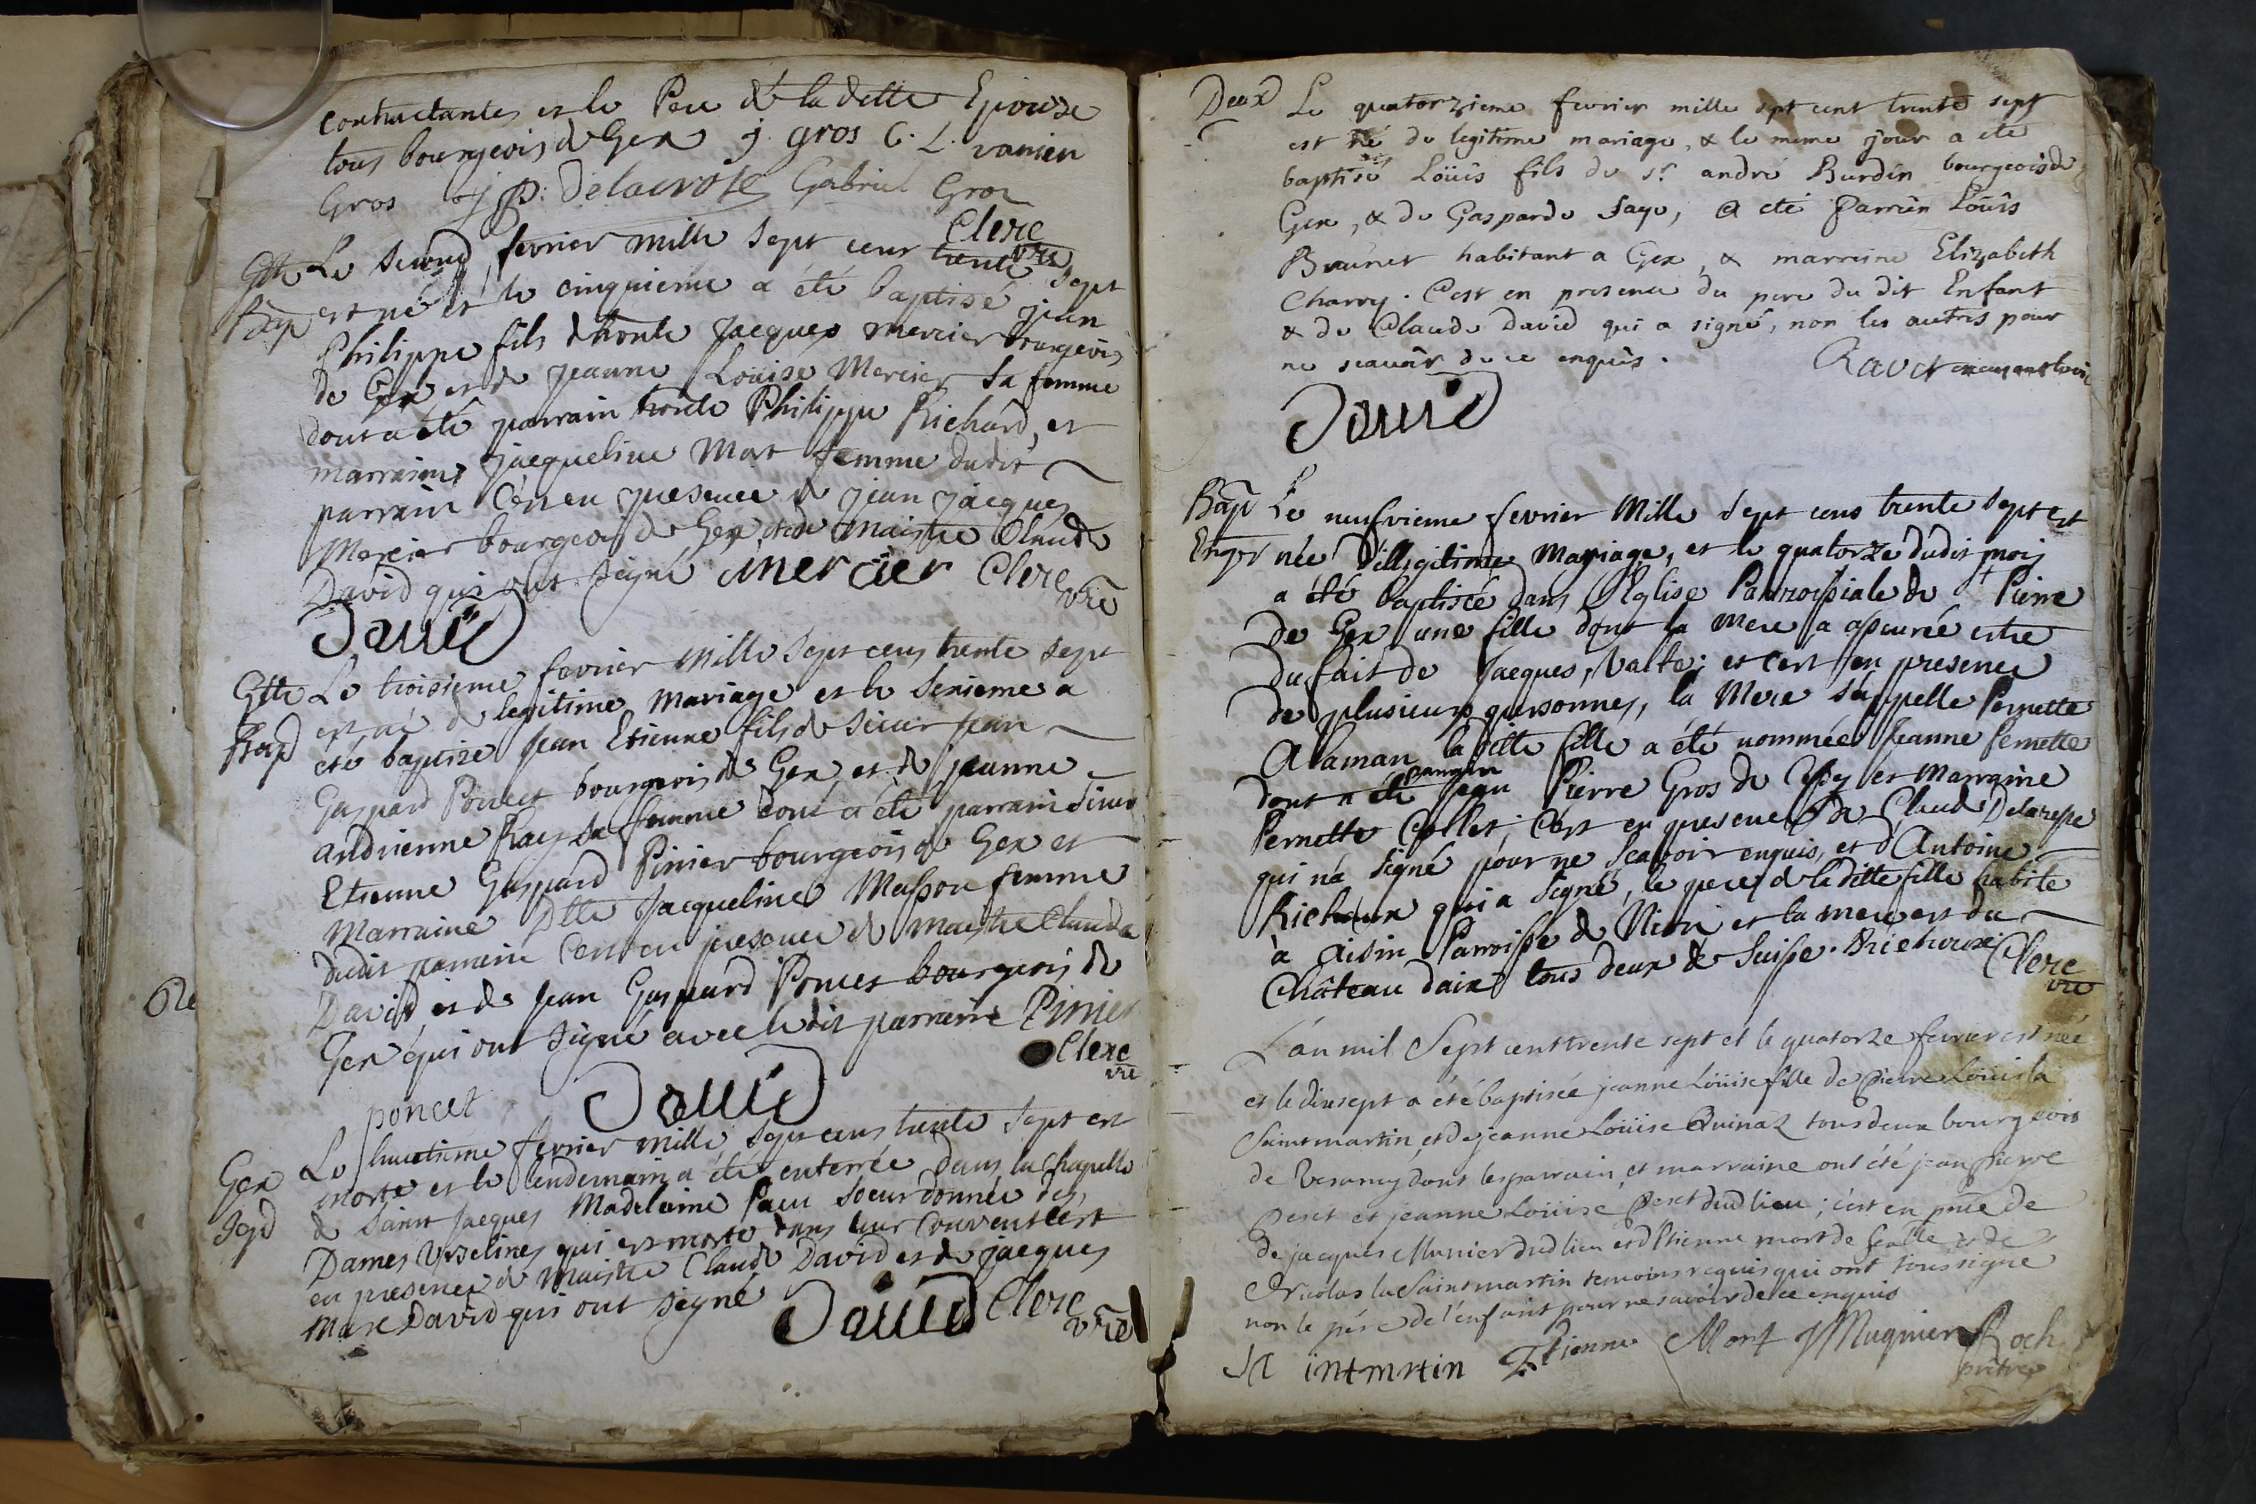 contractantes et le Pere de la ditte Epouse
tous bourgeois de Gex j. gros C. L. vanien
Gros j p: Delacroix Gabriel Gros
Clerc
vre
Gex Le second fevrier mille sept cens trente sept
Bap est né et le cinquieme a été baptisé jean
Philippe fils dhonte Jacques Mercier bourgeois
de Gex et de jeanne Louise Mercier sa femme
dont a été parrain honte Philippe Richard, et
marraine jacqueline Mort femme dudit
parrain C'est en presence de jean jacques
Mercier bourgeois de Gex et de maistre Claude
David qui ont signé mercier Clerc
vre
David
Gex Le troisieme fevrier mille sept cens trente sept
Bap est né de legitime mariage et le sixieme a
eté baptize Jean Etienne fils de sieur Jean
Gaspard Poncet bourgeois de Gex et de jeanne
andrienne Ray sa femme dont a été parrain sieur
Etienne Gaspard Pinier bourgeois de Gex et
Marraine Dlle Jacqueline Masson femme
dudit parrain C'est en presence de maistre Claude
David, et de Jean Gaspard Poncet bourgeois de
Gex qui ont signé avec ledit parrain Pinier
Clerc
vre
poncet David
Gex Le huitieme fevrier mille sept cens trente sept est
morte et le lendemain a été enterrée dans la chapelle
de Saint Jacques Madelaine soeur donnée des
Dames Urselines qui est morte dans leur Couvent c'est
en presence de maistre Claude David et de jacques
Marc David qui ont signé
David Clerc
vre
Deux Le quatorzieme fevrier mille sept cent trente sept
est né de legitime mariage, & le meme jour a eté
baptisé Loüis fils de sr. andré Burdin bourgeois de
Gex, & de Gasparde Jayo, a eté Parrein Loüis
Brunet habitant a Gex, & marreine Elizabeth
Charvy. C'est en presence du pere du dit Enfant
& de Claude david qui a signé, non les autres pour
ne scavoir de ce enquis. Ravet
David
Bap Le neufvieme fevrier Mille sept cens trente sept est
née d'illegitime Mariage, et le quatorze dudit mois
a été baptisée dans l'Eglise Parroissiale de St Pierre
de Gex une fille dont la mere a assurée estre
du fait de Jacques; et c'est en presence
de plusieurs personnes, la Mere s'appelle Pernette
Alaman la ditte fille a été nommée Jeanne Pernette
parrain
dont a été jean Pierre Gros de et Marraine
Pernette Collet; C'est en presence de Claude
qui n'a signé pour ne scavoir enquis, et d'Antoine
Richoux qui a signé, le pere de la ditte fille habite
à Parroisse de et la mere est du
Château daix tous deux de Suisse. Richoux
Clerc
vre
L'an mil Sept cent trente sept et le quatorze fevrier est née
et le dix sept a été baptisée jeanne Loüise fille de Pierre Loüis la
Saintmartin, et de jeanne Loüise Quinaz tous deux bourgeois
de Versonnex dont les parrain et marraine ont été jean Pierre
Peret et jeanne Loüise Peret dud lieu; c'est en pnce de
de jacques Munier dud lieu et d'Etienne mort de et de
Nicolas la Saintmartin temoins requis qui ont tous signé
non le pére de l'enfant pour ne savoir de ce enquis
intmrtin Etienne Mort J Mugnier Roch
prêtre